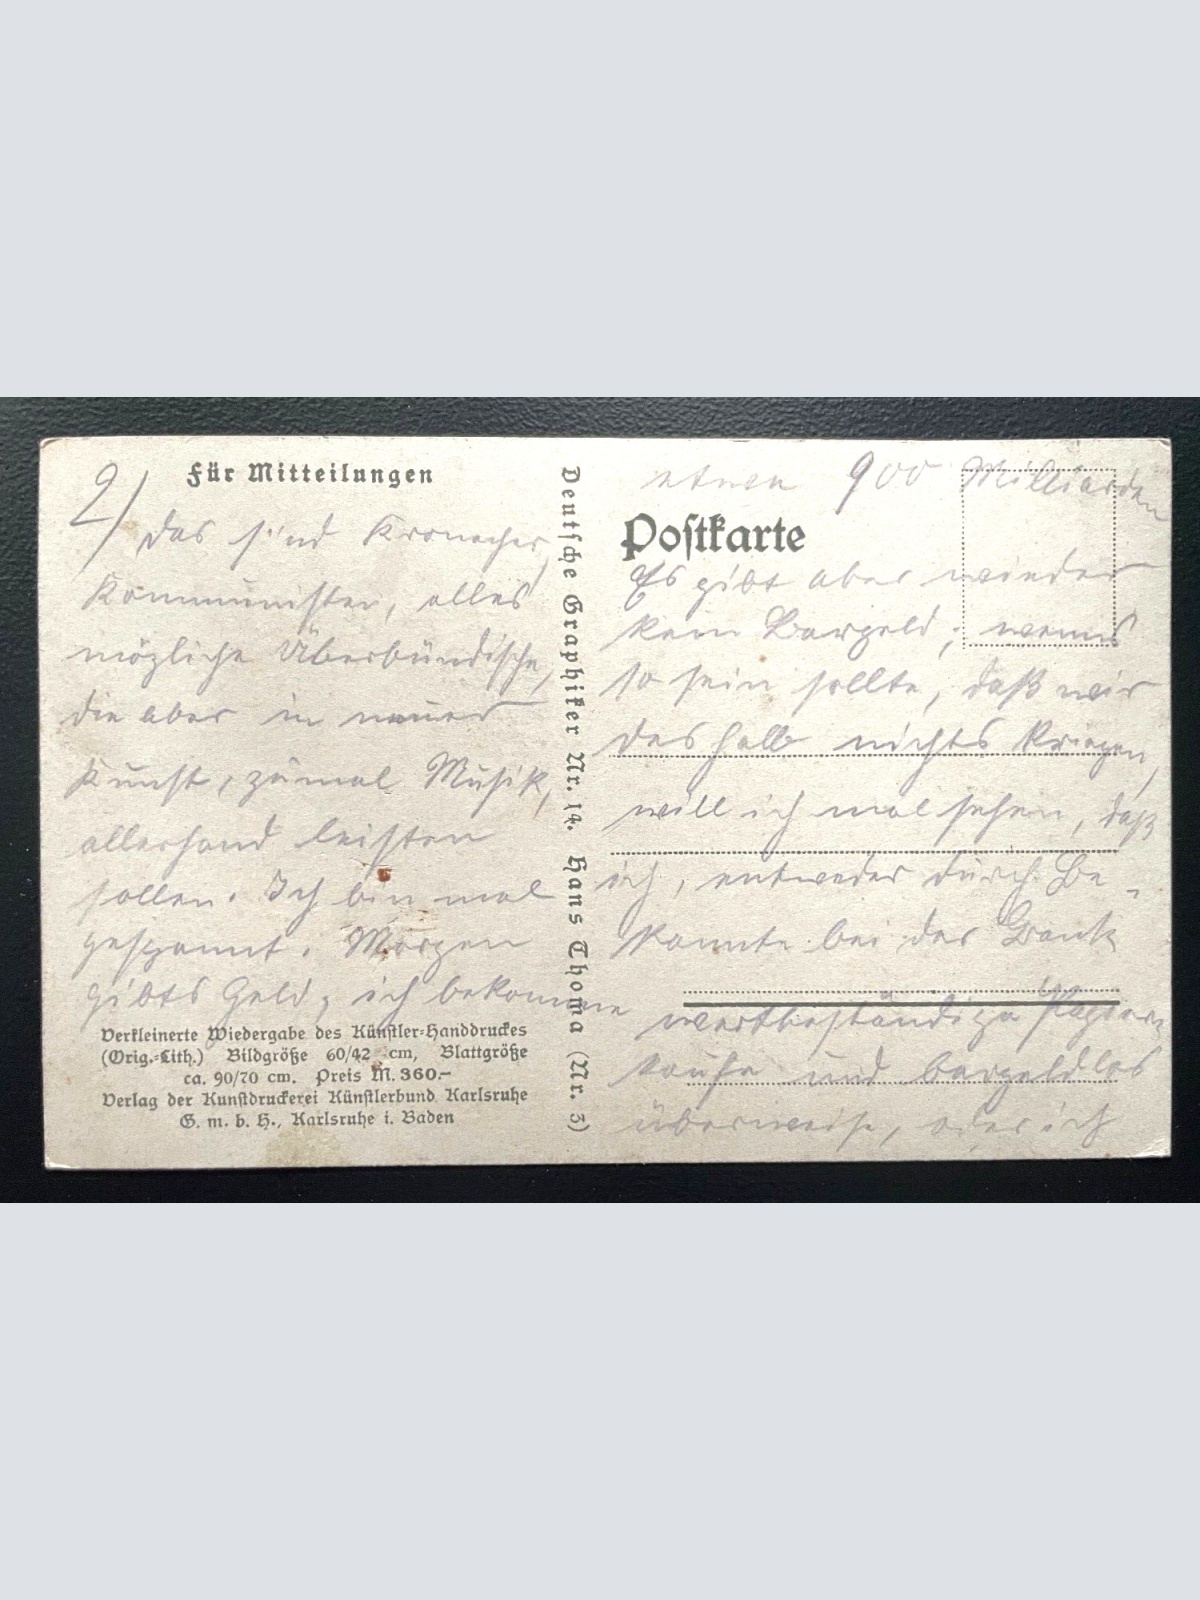 Für Mitteilungen
2/
Das sind Kronacher,
Kommunisten, alles
mögliche Überbündische,
die aber in neuer
Kunst, zumal Musik,
allerhand leisten
sollen. Ich bin mal
gespannt. Morgen
gibts Geld, ich bekomme
Verkleinerte Wiedergabe des Künstler-Handdruckes
(Orig.-Lith.) Bildgröße 60/42 cm, Blattgröße
ca. 90/70 cm. Preis M. 360.-
Verlag der Kunstdruckerei Künstlerbund Karlsruhe
G. m. b. H., Karlsruhe i. Baden
Deutsche Graphiker Nr. 14. Hans Thoma (Nr. 3)
etwa 900 Milliarden
Postkarte
Es gibt aber wieder
kein Bargeld; wenns
so sein sollte, daß wir
deshalb nichts kriegen,
will ich mal sehen, daß
ich, entweder durch Be-
kannte bei der Bank
wertbeständige Papiere
kaufe und bargeldlos
überweise, oder ich